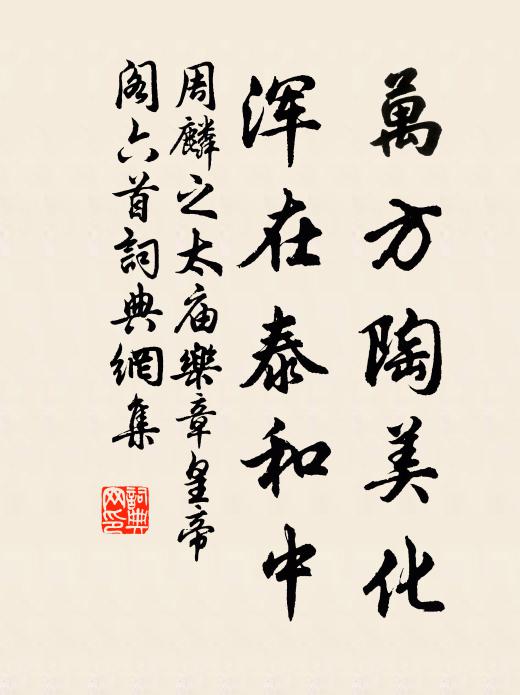 萬方陶美化
浑在泰和中
周麟之太庙樂章皇帝
阁六首詞典網集
詞典网印